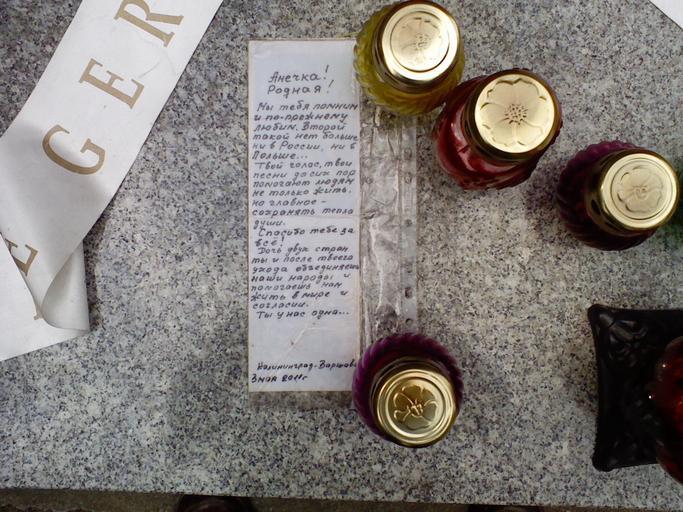 GER
E
Анечка!
Родная!
Мы тебя помним
и по-прежнему
любим. Второй
такой нет больше
ни в России, ни в
Польше...
Твой голос, твои
песни до сих пор
помогают людям
не только жить,
но главное -
сохранять тепло
души.
Спасибо тебе за
всё!
Дочь двух стран
ты и после твоего
ухода объединяешь
наши народы и
помогаешь нам
жить в мире и
согласии.
Ты у нас одна...
Калининград-Варшава
3 мая 2011г